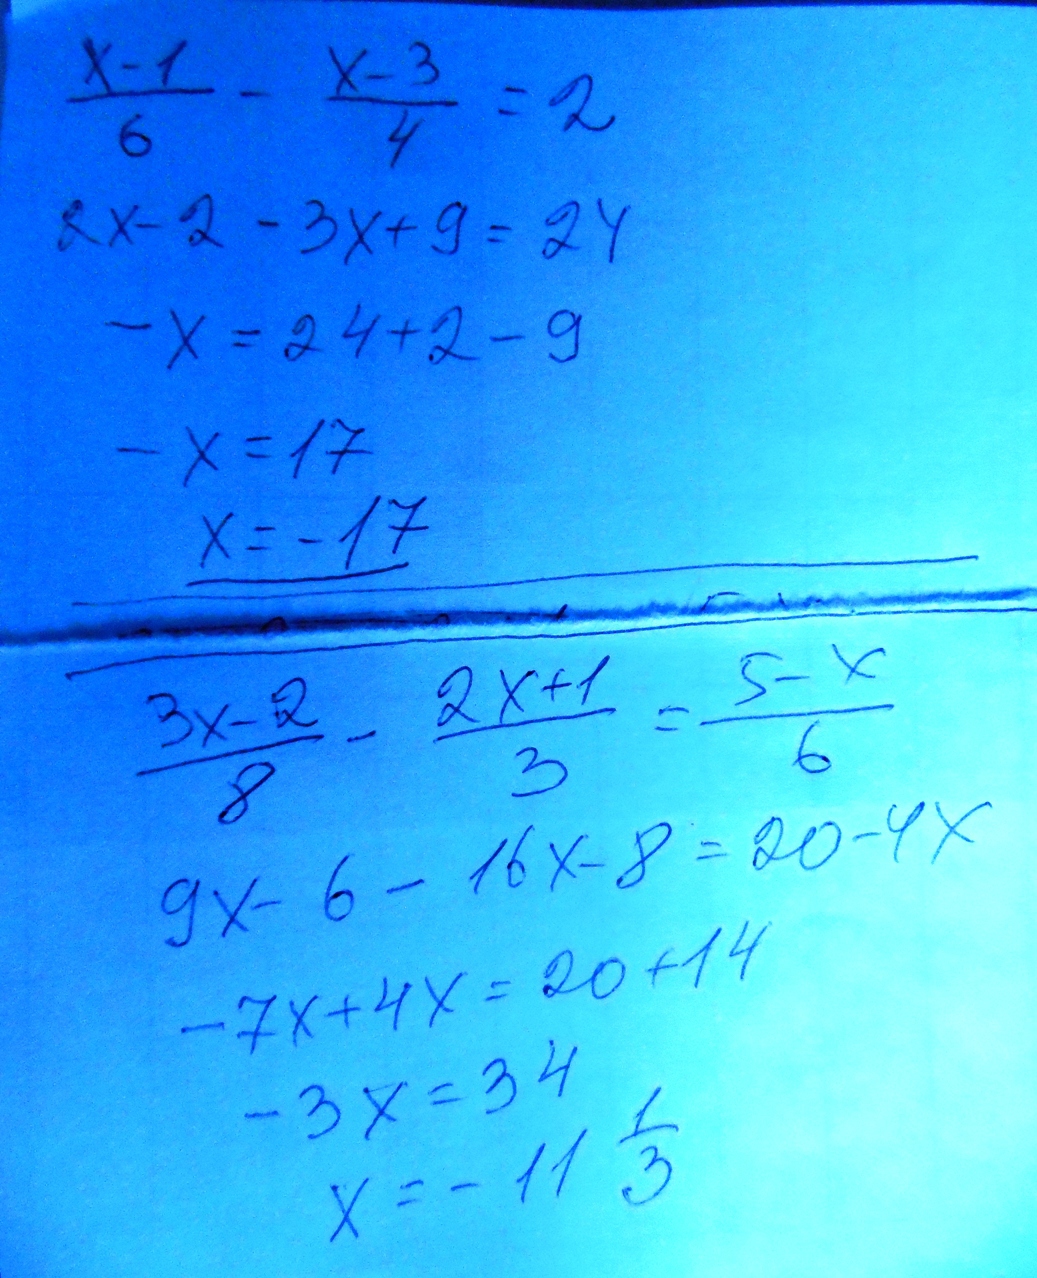 (x-1)/6 - (x-3)/4 = 2
2x-2 - 3x+9 = 24
-x = 24+2-9
-x = 17
x = -17
(3x-2)/8 - (2x+1)/3 = (5-x)/6
9x-6 - 16x-8 = 20-4x
-7x+4x = 20+14
-3x = 34
x = -11 1/3